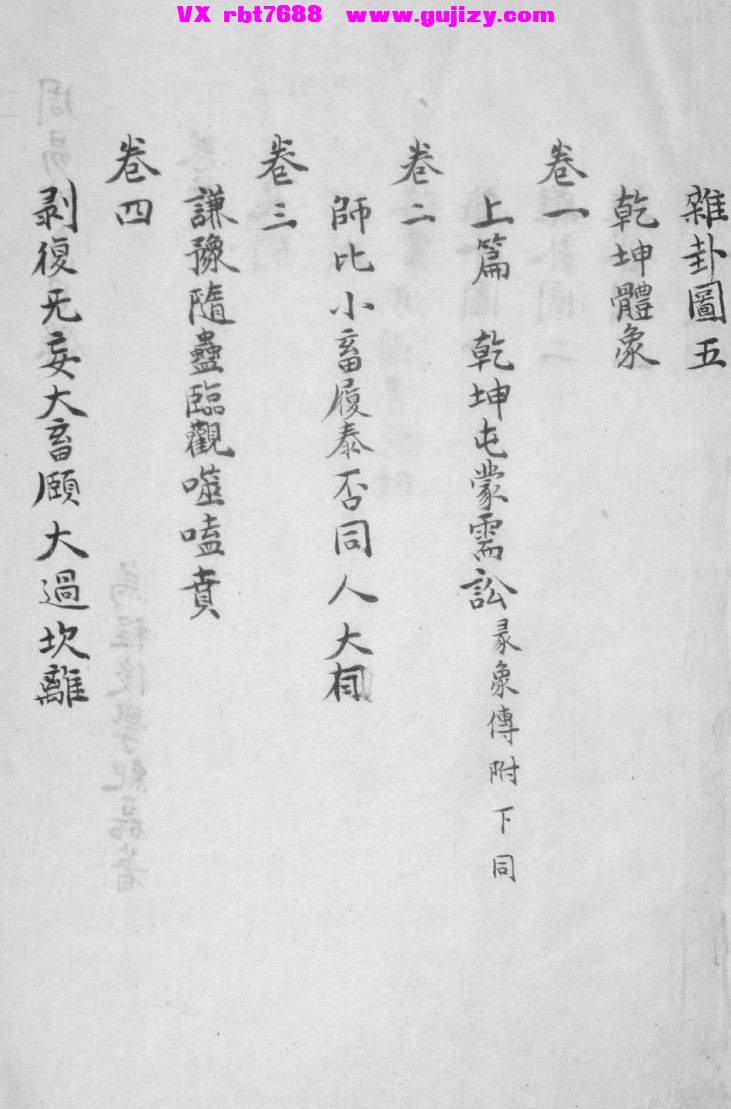 VX rbt7688 www.gujizy.com
雜卦圖五
乾坤體象
卷一
上篇 乾坤屯蒙需訟 彖象傳附下同
卷二
師比小畜履泰否同人大有
卷三
謙豫隨蠱臨觀噬嗑賁
卷四
剥復无妄大畜頤大過坎離